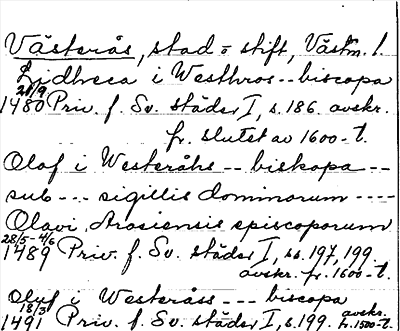 Västerås, stad o stift, Västm. l.
Lidhveca i Westhros -- biscopa
28/9
1480 Priv. f. Sv. städer I, s. 186. avskr.
fr. slutet av 1600-t.
Olof i Westeråhs -- biskopa --
sub --- sigillis dominorum ----
Olavi, Arosiensis episcoporum
28/5-4/6
1489 Priv. f. Sv. städer I, ss. 197, 199.
avskr. fr. 1600-t.
Oluf i Westeråss --- biscopa
18/3
1491 Priv. f. Sv. städer I, s. 199. avskr. fr. 1500-t.